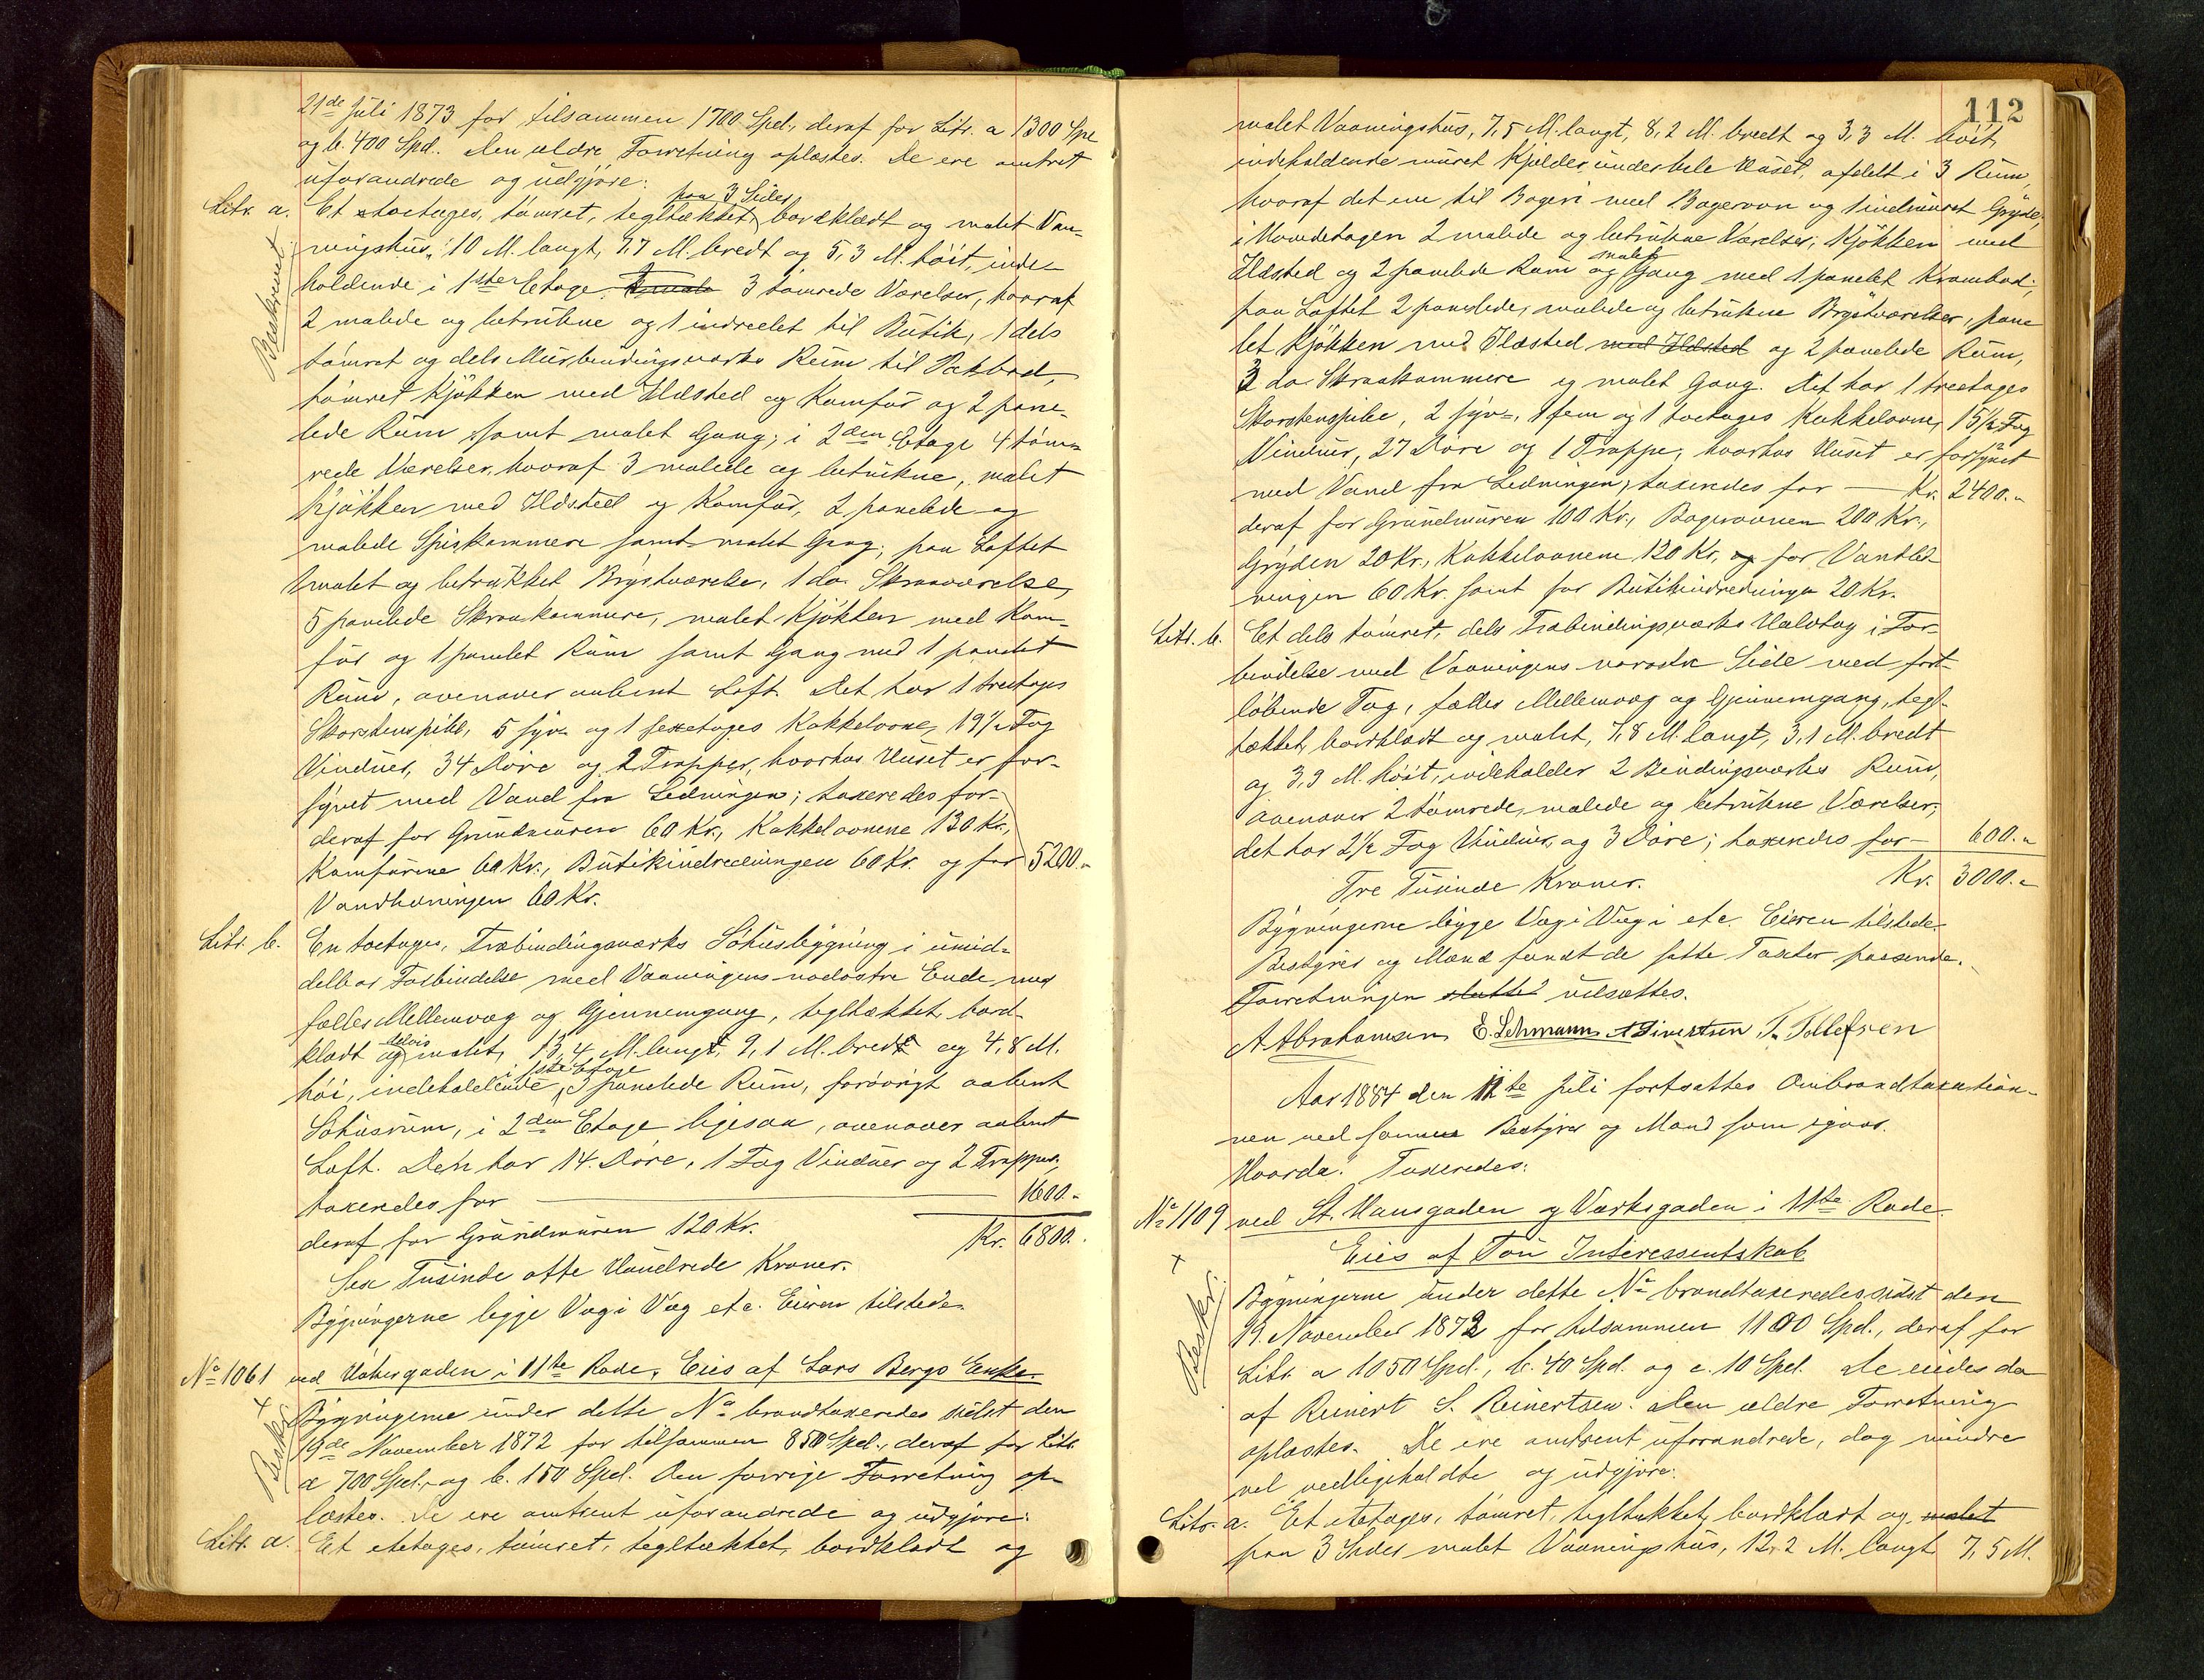 21de Juli 1873 for tilsammen 1700 Spd., deraf for Litr. a 1300 Spd
og b. 400 Spd. Den ældre Forretning oplæstes. De ere omtrent
uforandrede og udgjöre:
paa 3 Sider
Litr. a. Et toetages, tömret, tegltækket, bordklædt og malet Vaa-
ningshus, 10 M. langt, 7,7 M. bredt og 5,3 M. höit, inde-
Beskrevet
holdende i 1ste Etage 3 tömrede Værelser, hvoraf
2 malede og betrukne og 1 indredet til Butik, 1 dels
tömret og dels Murbindingsværks Rum til Pakbod,
tömret Kjökken med Ildsted og Komfur og 2 pane-
lede Rum samt malet Gang; i 2den Etage 4 töm-
rede Værelser, hvoraf 3 malede og betrukne, malet
Kjökken med Ildsted og Komfur, 2 panelede og
malede Spiskammere samt malet Gang; paa Loftet
1 malet og betrukket Brystværelse, 1 do. Skraaværelse,
5 panelede Skraakammere, malet Kjökken med Kom-
für og 1 panelet Rum samt Gang med 1 panelet
Rum, ovenover aabent Loft. Det har 1 treetages
Skorstenspibe, 5 syv- og 1 sexetages Kakkelovne, 19½ Fag
Vinduer, 34 Döre og 2 Trapper, hvorhos Huset er for-
synet med Vand fra Ledningen; taxeredes for-
deraf for Grundmuren 60 Kr., Kakkelovnene 130 Kr.,
Komfurene 60 Kr., Butikindredningen 60 Kr. og for 5200.-
Vandledningen 60 Kr.
Litr. b. En toetages, Træbindingsværks Söhusbygning i umid-
delbar Forbindelse med Vaaningens nordöstre Ende med
fælles Mellemvæg og Gjennemgang, tegltækket, bord-
delvis
klædt og malet, 13,4 M. langt, 9,1 M. bredt og 4,8 M.
i 1ste Etage
höi, indeholdende 3 panelede Rum, forövrigt aabent
Söhusrum, i 2den Etage ligesaa, ovenover aabent
Loft. Den har 14 Döre, 1 Fag Vinduer og 2 Trapper,
taxeredes for 1600.-
deraf for Grundmuren 120 Kr. Kr. 6800.
Sex Tusinde otte Hundrede Kroner.
Bygningerne ligge Væg i Væg etc. Eieren tilstede.
No 1061 ved Vahesgaden i 11te Rode. Eies af Lars Bergs Enke.
Beskr.
Bygningerne under dette No brandtaxeredes sidst den
19de November 1872 for tilsammen 850 Spd., deraf for Litr.
a 700 Spd. og b. 150 Spd. Den forrige Forretning op-
læstes. De ere omtrent uforandrede og udgjöre:
Litr. a. Et etetages, tömret, tegltækket, bordklædt og
112
malet Vaaningshus, 7,5 M. langt, 8,2 M. bredt og 3,3 M. höit,
indeholdende muret Kjelder under hele Huset, afdelt i 3 Rum,
hvoraf det ene til Bageri med Bagerovn og 1 indmuret Gryde;
i Hovedetagen 2 malede og betrukne Værelser, Kjökken med
malet
Ildsted og 2 panelede Rum og Gang med 1 panelet Krambod;
paa Loftet 2 panelede, malede og betrukne Brystværelser, pane
let Kjökken med Ildsted med Ildsted og 2 panelede Rum,
3 do. Skraakammere og malet Gang. Det har 1 treetages
Skorstenspibe, 2 syv-, 1 fem og 1 toetages Kakkelovne, 15½ Fag
Vinduer, 27 Döre og 1 Trappe, hvorhos Huset er forsynet
med Vand fra Ledningen, taxeredes for — Kr. 2400.-
deraf for Grundmuren 100 Kr., Bagerovnen 200 Kr.,
Gryden 20 Kr., Kakkelovnene 120 Kr., og for Vandled-
ningen 60 Kr. samt for Butikindredningen 20 Kr.
Litr. b. Et dels tömret, dels Træbindingsværks Halvtag i For-
bindelse med Vaaningens nordöstre Side med fort-
löbende Tag, fælles Mellemvæg og Gjennemgang, tegl-
tækket, bordklædt og malet, 7,8 M. langt, 3,1 M. bredt
og 3,9 M. höit, indeholder 2 Bindingsværks Rum,
ovenover 2 tömrede, malede og betrukne Værelser;
det har 2½ Fag Vinduer og 3 Döre; taxeredes for - 600.-
Tre Tusinde Kroner. Kr. 3000.-
Bygningerne ligge Væg i Væg etc. Eieren tilstede.
Bestyrer og Mænd fandt de satte Taxter passende.
Forretningen sluttet udsættes.
A Abrahamsen E. Lehmann A Sivertsen T. Tollefsen
Aar 1884 den 12te Juli fortsattes Ombrandtaxatio-
nen ved samme Bestyrer og Mænd som igaar.
Hvorda: Taxeredes:
No 1109 ved St. Hansgaden og Værksgaden i 11te Rode.
Eies af Tou Interessentskab
Beskr.
Bygningerne under dette No brandtaxeredes sidst den
19. November 1872 for tilsammen 1100 Spd., deraf for
Litr. a 1050 Spd., b. 40 Spd. og c. 10 Spd. De eiedes da
af Reinert S. Reinertsen. Den ældre Forretning
oplæstes. De ere omtrent uforandrede, dog mindre
vel vedligeholdte og udgjöre:
Litr. a. Et etetages, tömret, tegltækket, bordklædt og malet
paa 3 Sider malet Vaaningshus, 12,2 M. langt 7,5 M.